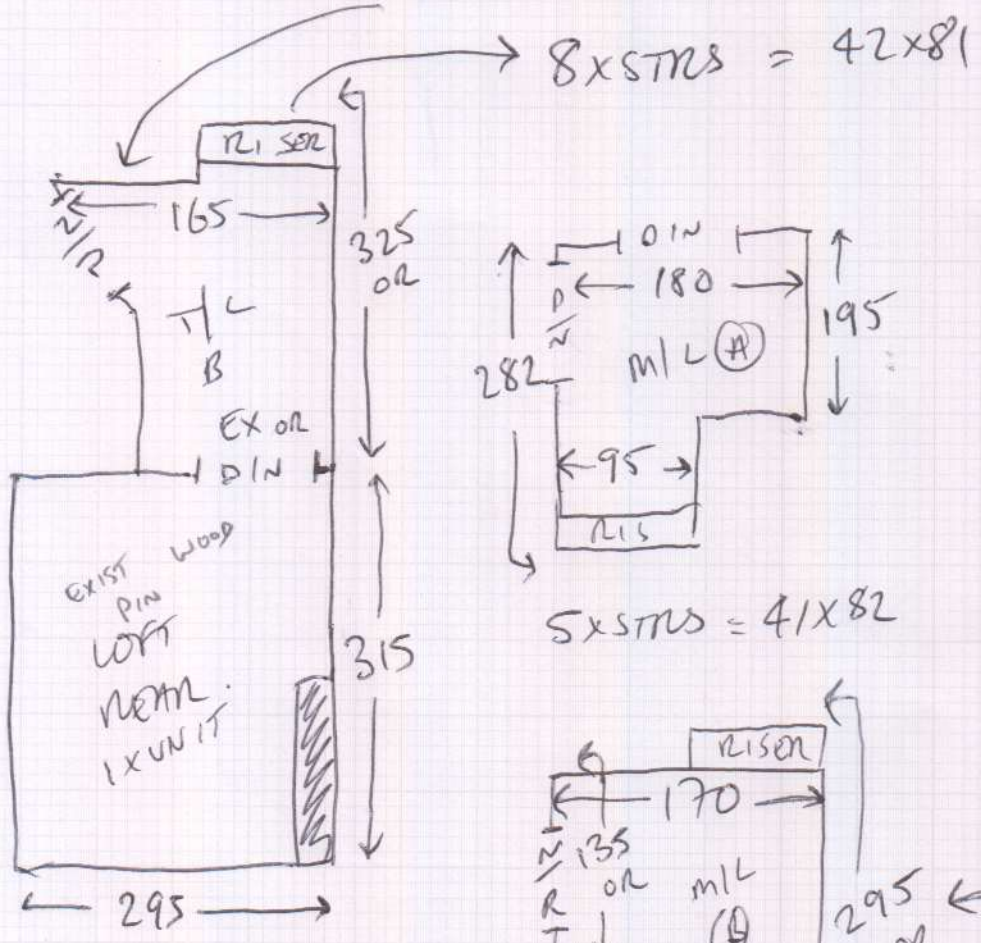 8 x STRS = 42 x 81
RISER
165
325
OR
T/L
B
EX OR
DIN
EXIST WOOD
PIN
LOFT
REAR
1 X UNIT
315
295
DIN
180
195
282
M/L (A)
95
RIS
5 x STRS = 41 x 82
RISER
170
135
OR
M/L
295